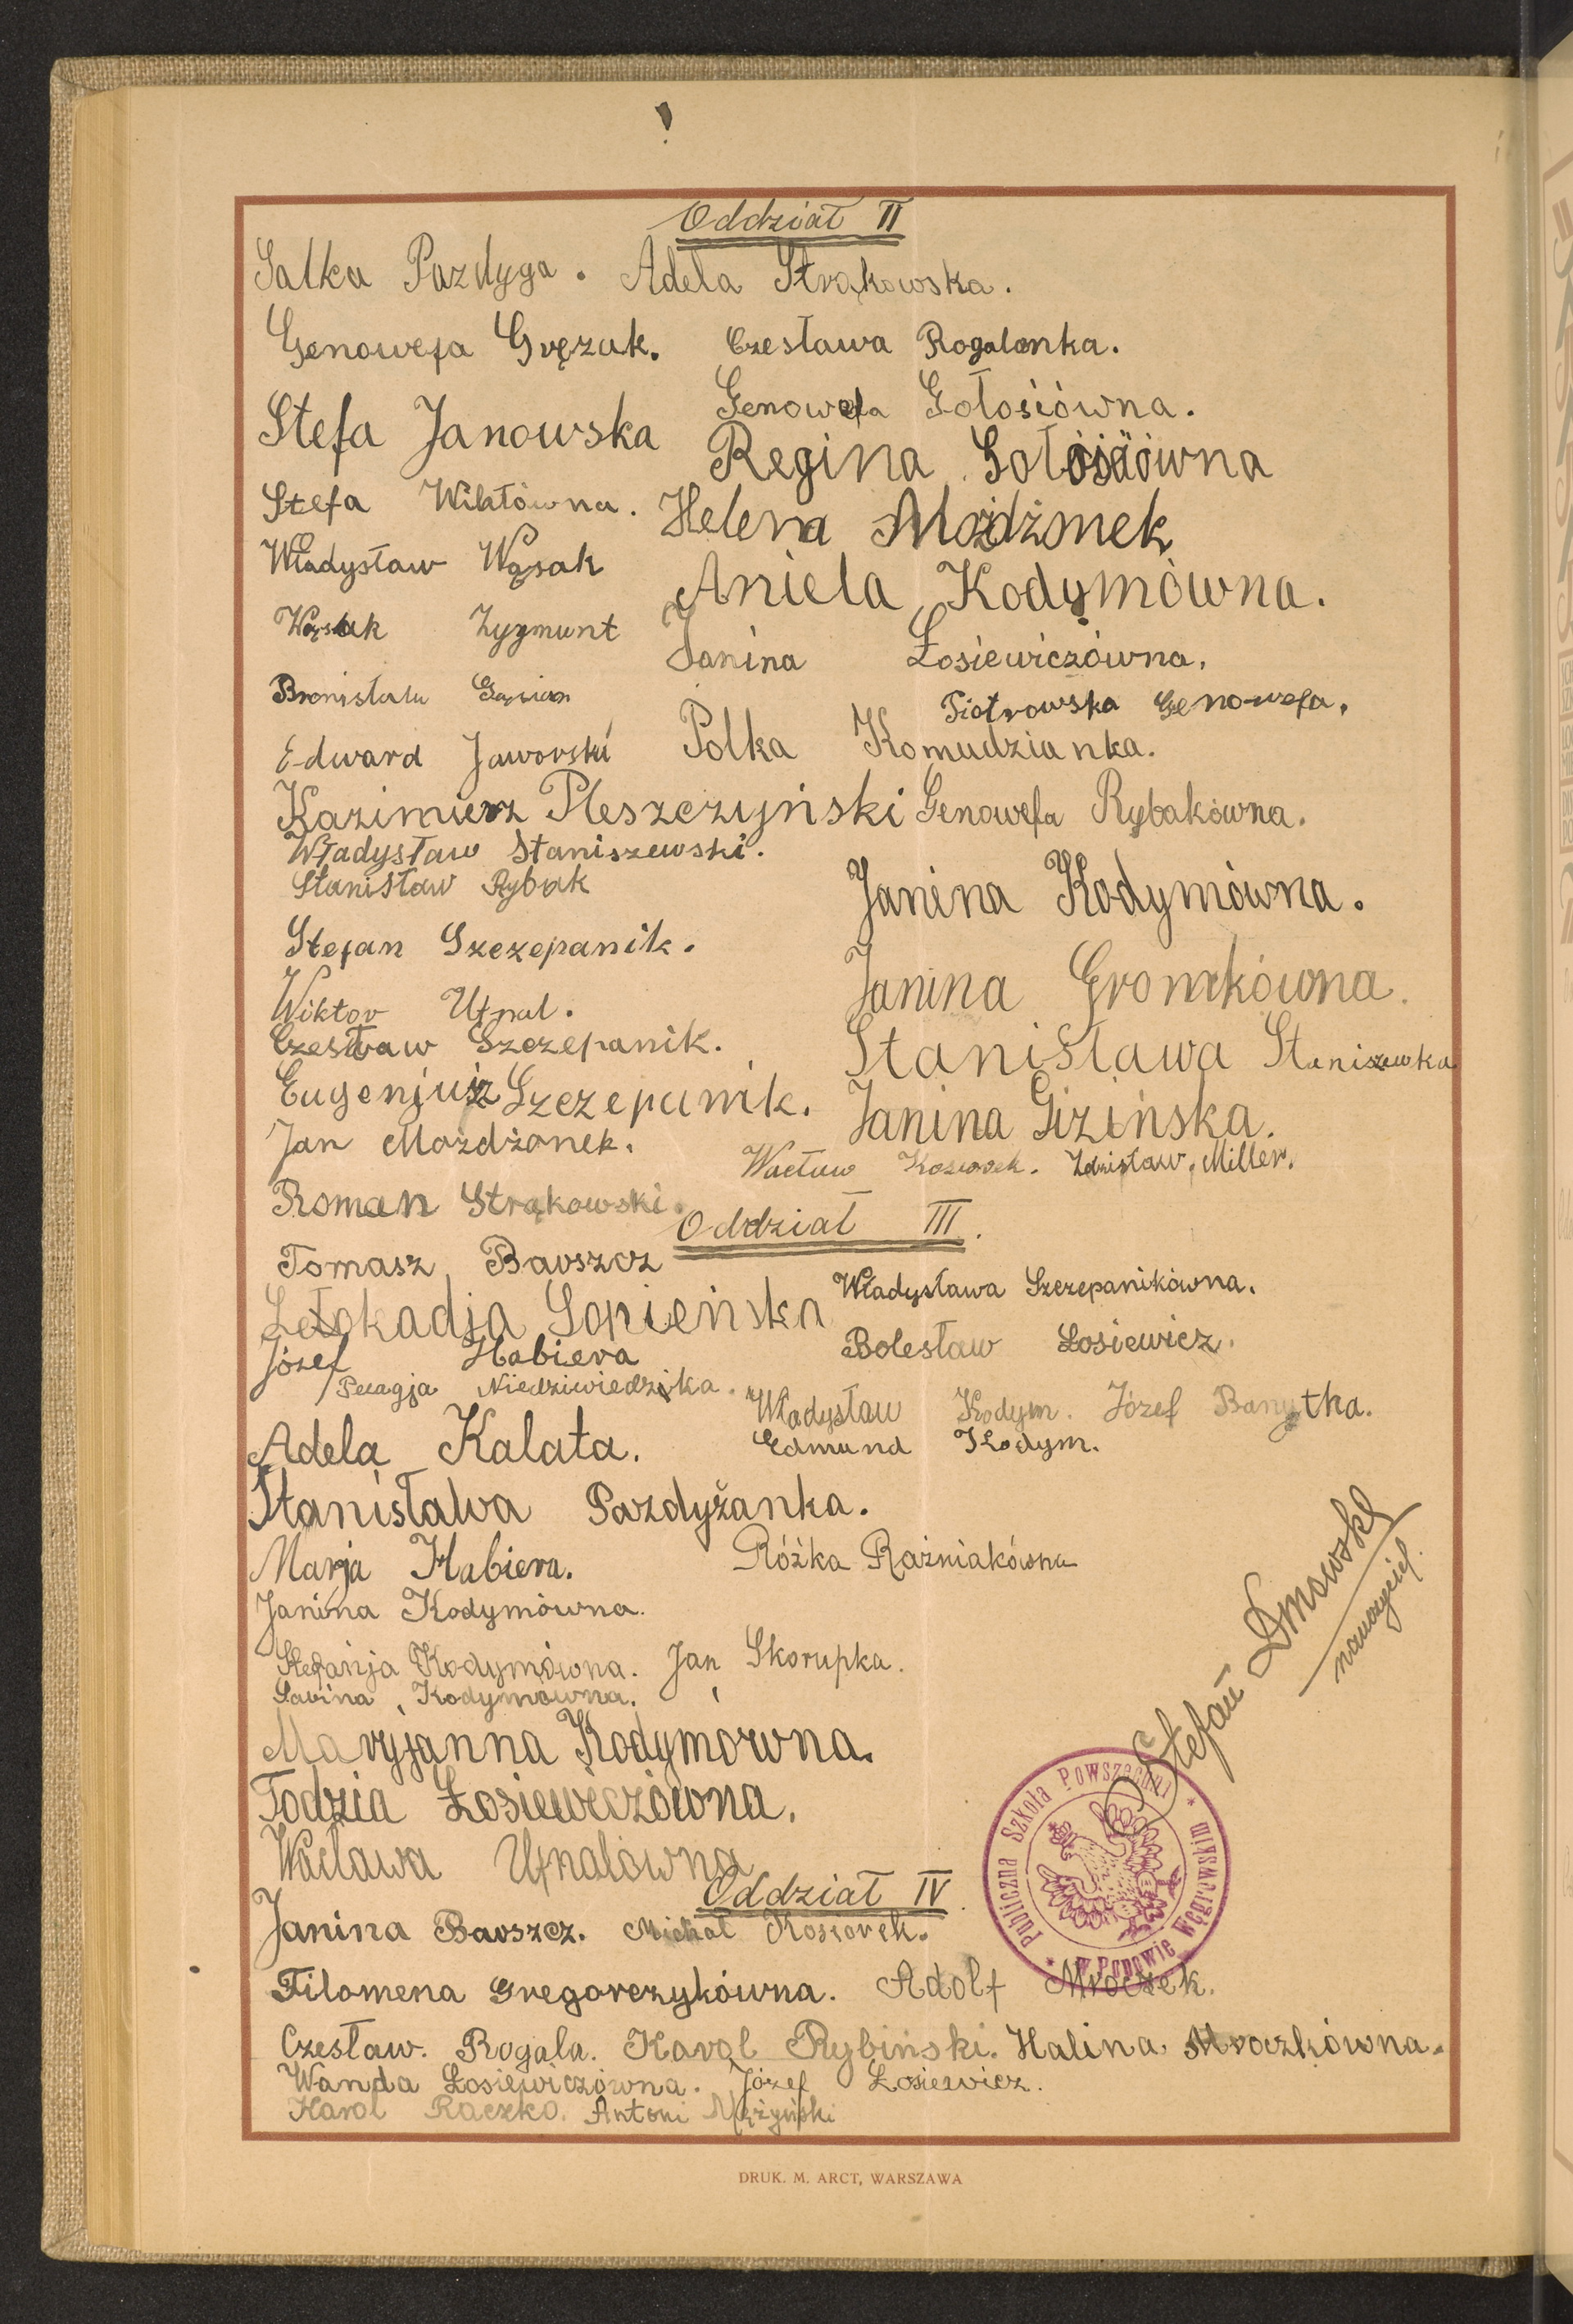 Oddział II
Salka Pazdyga. Adela Strąkowska.
Genowefa Gręzak. Czesława Rogalanka.
Genowefa Gołosiówna.
Stefa Janowska
Regina
Stefa Wiktówna.
Helena
Władysław Wąsak
Aniela Kodymówna.
Wąsak Zygmunt
Janina Łosiewiczówna.
Bronisława
Piotrowska Genowefa.
Edward Jaworski
Polka Komudzianka.
Kazimierz Pleszczyński Genowefa Rybakówna.
Władysław Staniszewski.
Stanisław Rybak
Janina Kodymówna.
Stefan Szczepanik.
Janina
Wiktor Ufnal.
Czesław Szczepanik.
Stanisława Staniszewka
Eugenjusz Szczepanik.
Janina Gizińska.
Jan Możdżonek.
Wacław Kosiorek. Zdzisław Miller.
Roman Strąkowski.
Oddział III.
Tomasz Barszcz
Władysława Szczepanikówna.
Sopieńska
Józef Habiera
Bolesław Łosiewicz.
Pelagja Niedziwiedzka.
Władysław Kodym. Józef Banytka.
Adela Kalata.
Edmund Kodym.
Stanisława Pazdyżanka.
Marja Habiera.
Róźka Raźniakówna
Janina Kodymówna.
Stefanja Kodymówna. Jan Skorupka.
Sabina Kodymówna.
Maryjanna Kodymówna.
Todzia Łosiewiczówna.
Wacława Ufnalówna
Stefan Dmowski
nauczyciel.
Publiczna Szkoła Powszechna * w Popowie Węgrowskim *
Oddział IV.
Janina Barszcz. Michał Kosiorek.
Filomena Gregorczykówna. Adolf Mroczek.
Czesław. Rogala. Karol Rybiński. Halina. Mroczkówna.
Wanda Łosiewiczówna. Józef Łosiewicz.
Karol Raczko. Antoni
DRUK. M. ARCT, WARSZAWA